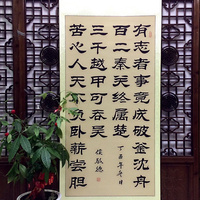 有志者事竟成破釜沈舟
百二秦关终属楚
苦心人天不负卧薪尝胆
三千越甲可吞吴
丁酉年